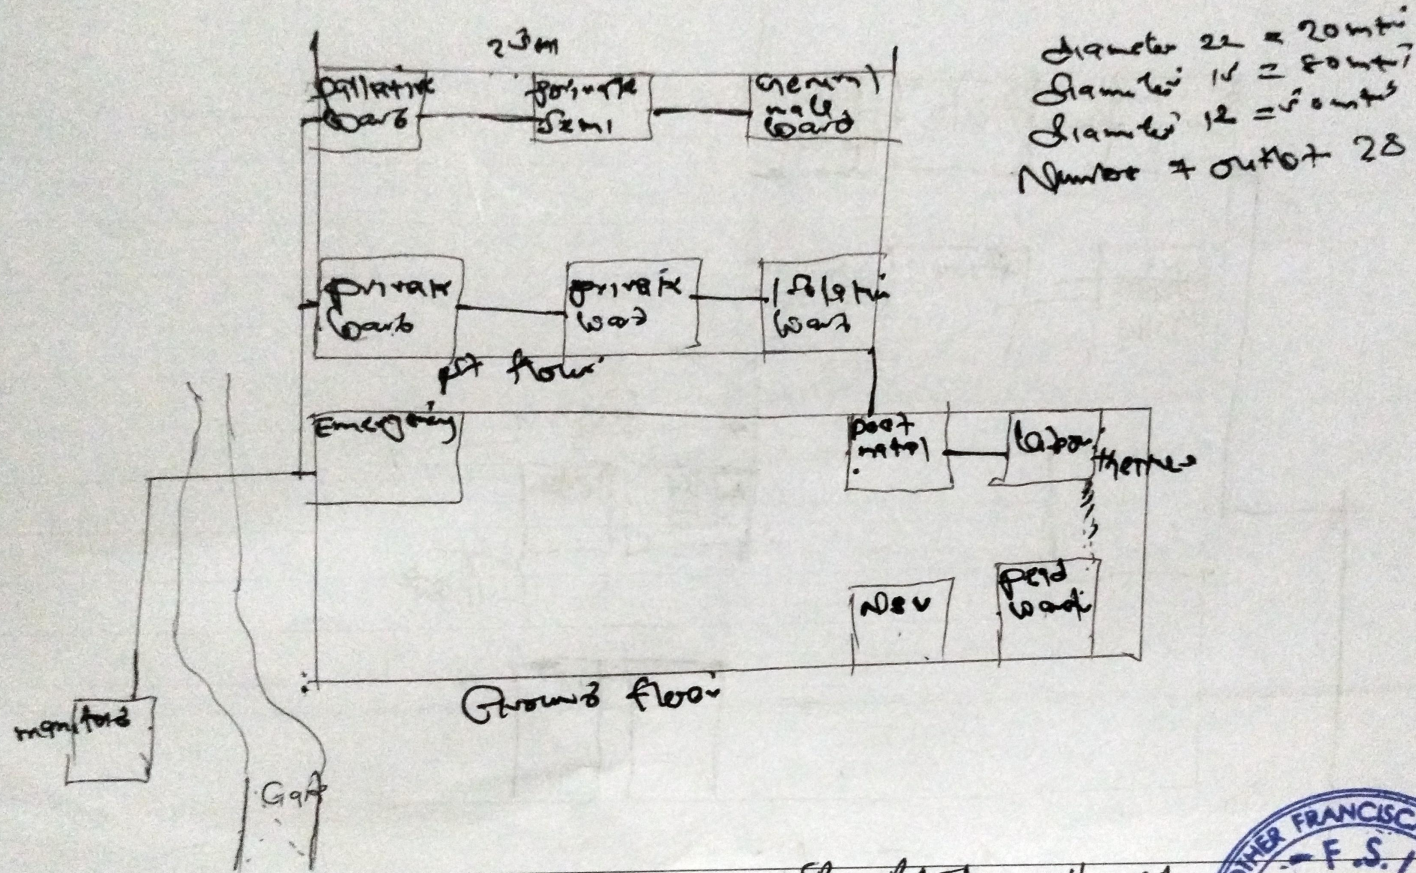 23m
diameter 22 = 20 mtri
diameter 15 = 80 mtri
diameter 12 = 50 mtrs
Number of outlet 28
palliative
ward
private
General
male
ward
private
ward
private
ward
ward
1st flour
Emergency
post
natal
labor
theatre
ward
Ground floor
Gate
OTHER FRANCISC
F.S.